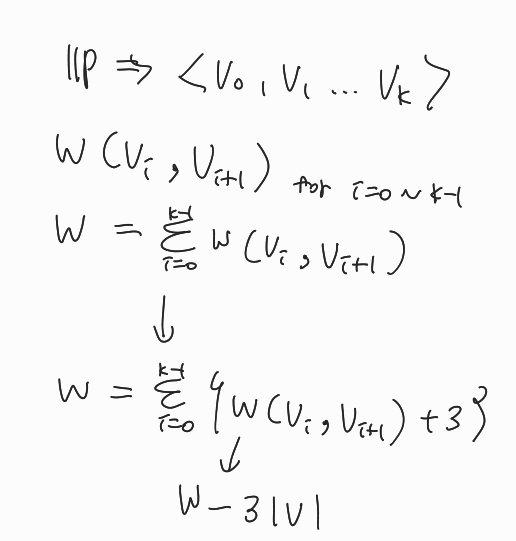 llp ⇒ <V₀, V₁ ... Vₖ>
W (Vᵢ, Vᵢ₊₁) for i=0 ~ k-1
W = Σ_{i=0}^{k-1} w (Vᵢ, Vᵢ₊₁)
↓
W = Σ_{i=0}^{k-1} {w (Vᵢ, Vᵢ₊₁) + 3}
↓
W - 3|V|